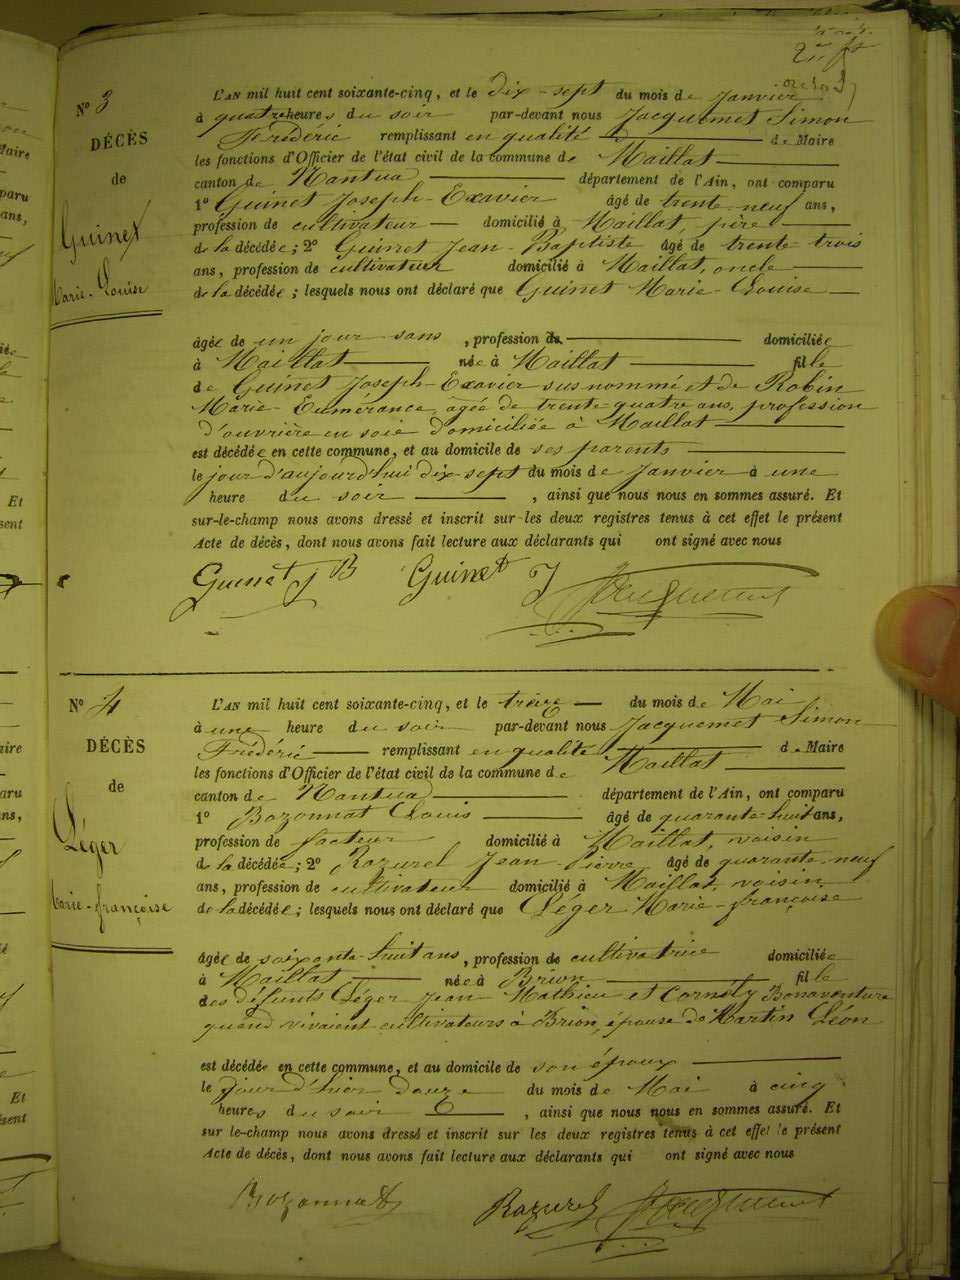 N° 3
DÉCÈS
de
Guinet
Marie-Louise
L'AN mil huit cent soixante-cinq, et le dix-sept du mois de Janvier
à quatre heures du soir par-devant nous Jacquemet Simon
Frédéric remplissant en qualité de Maire
les fonctions d'Officier de l'état civil de la commune de Maillat
canton de Nantua département de l'Ain, ont comparu
1° Guinet Joseph-Exavier âgé de trente-neuf ans,
profession de cultivateur domicilié à Maillat, père
de la décédée; 2° Guinet Jean-Baptiste âgé de trente-trois
ans, profession de cultivateur domicilié à Maillat, oncle
de la décédée; lesquels nous ont déclaré que Guinet Marie-Louise
âgée de un jour sans, profession de domiciliée
à Maillat née à Maillat fille
de Guinet Joseph-Exavier susnommé et de Robin
Marie-Eumérance, âgée de trente-quatre ans, profession
d'ouvrière en soie domiciliée à Maillat
est décédée en cette commune, et au domicile de ses parents
le jour d'aujourd'hui dix-sept du mois de Janvier à une
heure du soir, ainsi que nous nous en sommes assuré. Et
sur-le-champ nous avons dressé et inscrit sur les deux registres tenus à cet effet le présent
Acte de décès, dont nous avons fait lecture aux déclarants qui ont signé avec nous
Guinet J B Guinet J Jacquemet
N° 4
DÉCÈS
de
Léger
Marie-françoise
L'AN mil huit cent soixante-cinq, et le treize du mois de Mai
à une heure du soir par-devant nous Jacquemet Simon
Frédéric remplissant en qualité de Maire
les fonctions d'Officier de l'état civil de la commune de Maillat
canton de Nantua département de l'Ain, ont comparu
1° Bozonnat Louis âgé de quarante-huit ans,
profession de facteur domicilié à Maillat, voisin
de la décédée; 2° Razurel Jean-Pierre âgé de quarante-neuf
ans, profession de cultivateur domicilié à Maillat, voisin
de la décédée; lesquels nous ont déclaré que Léger Marie-françoise
âgée de soixante-huit ans, profession de cultivatrice domiciliée
à Maillat née à Brion fille
des défunts Léger Jean Mathieu et Cornety Bonaventure
quand vivaient cultivateurs à Brion, épouse de Martin Léon
est décédée en cette commune, et au domicile de son époux
le jour d'hier douze du mois de Mai à cinq
heures du soir, ainsi que nous nous en sommes assuré. Et
sur le-champ nous avons dressé et inscrit sur les deux registres tenus à cet effet le présent
Acte de décès, dont nous avons fait lecture aux déclarants qui ont signé avec nous
Bozonnat Razurel Jacquemet